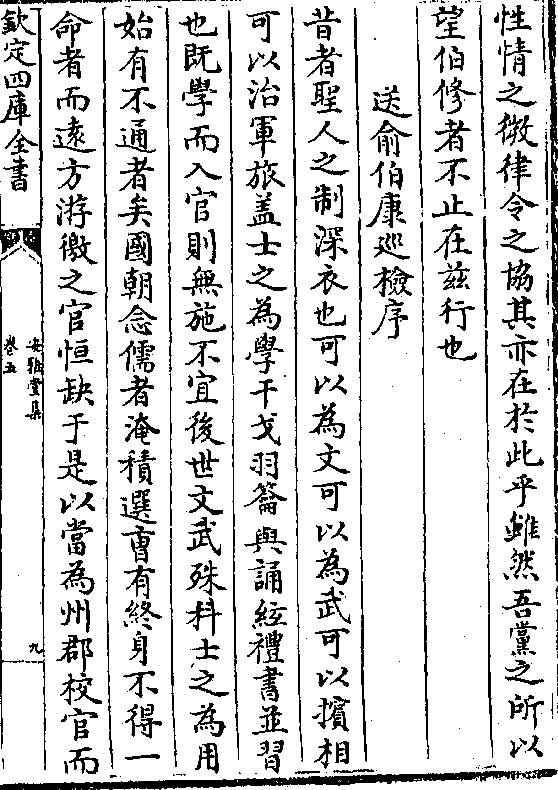 性情之微律令之協其亦在於此乎雖然吾黨之所以
望伯修者不止在兹行也
送俞伯康巡檢序
昔者聖人之制深衣也可以為文可以為武可以擯相
可以治軍旅盖士之為學干戈羽籥與誦經禮書並習
也既學而入官則無施不宜後世文武殊科士之為用
始有不通者矣國朝念儒者淹積選曹有終身不得一
命者而遠方游徼之官恒缺于是以當為州郡校官而
欽定四庫全書
安雅堂集
卷五
九